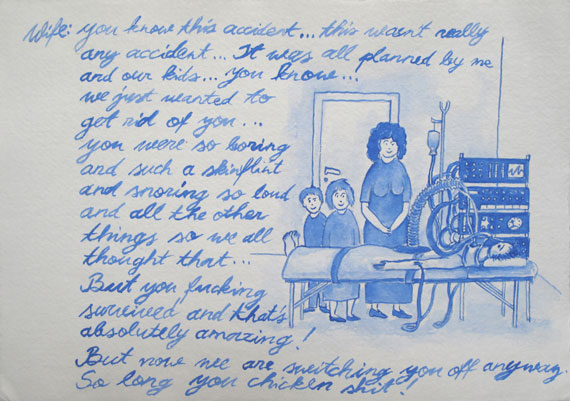 Wife: you know this accident... this wasn't really
any accident... It was all planned by me
and our kids... you know...
we just wanted to
get rid of you...
you were so boring
and such a skinflint
and snoring so loud
and all the other
things so we all
thought that...
But you fucking
survived and that's
absolutely amazing!
But now we are switching you off anyway.
So long you chicken shit!